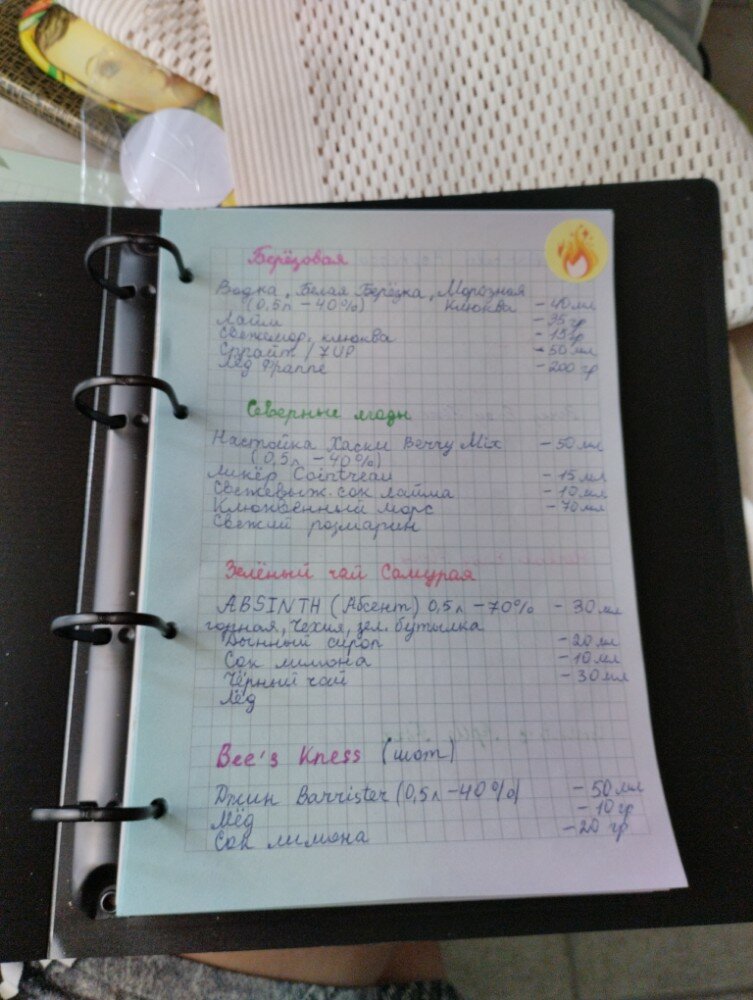 Берёзовая
Водка „Белая Берёзка„ Морозная
(0,5л – 40%) Клюква – 40мл
Лайм – 35гр
Свежемор. клюква – 15гр
Спрайт / 7UP – 50 мл
Лёд Фраппе – 200 гр
Северные ягоды
Настойка Хаски Berry Mix – 50мл
(0,5л – 40%)
Ликёр Cointreau – 15мл
Свежевыж. сок лайма – 10мл
Клюквенный морс – 70мл
Свежий розмарин
Зелёный чай Самурая
ABSINTH (Абсент) 0,5л – 70% – 30мл
горная, Чехия, зел. бутылка
Дынный сироп – 20мл
Сок лимона – 10мл
Чёрный чай – 30мл
Лёд
Bee's Kness (шот)
Джин Barrister (0,5л – 40%) – 50мл
Мёд – 10гр
Сок лимона – 20 гр